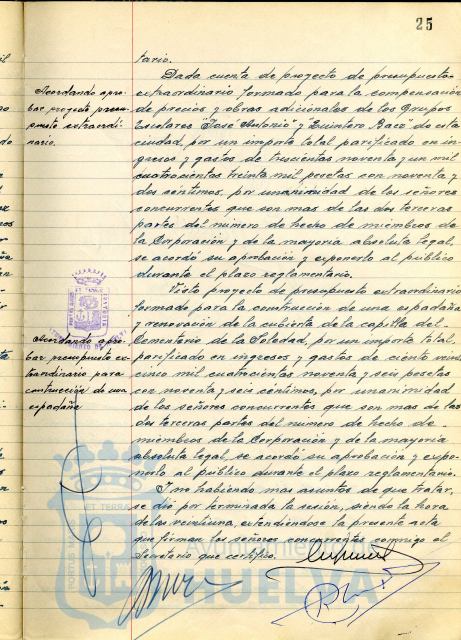 25
tario.
Dada cuenta de proyecto de presupuesto
extraordinario formado para la compensación
de precios y obras adicionales de los Grupos
Escolares "José Antonio" y "Quintero Baez" de esta
ciudad, por un importe total parificado en in-
gresos y gastos de trescientas noventa y un mil
cuatrocientas treinta mil pesetas con noventa y
dos céntimos, por unanimidad de los señores
concurrentes que son mas de las dos terceras
partes del número de hecho de miembros de
la Corporación y de la mayoria absoluta legal,
se acordó su aprobación y exponerlo al público
durante el plazo reglamentario.
Visto proyecto de presupuesto extraordinario
formado para la construcción de una espadaña
y renovación de la cubierta de la capilla del
Cementerio de la Soledad, por un importe total,
parificado en ingresos y gastos de ciento vein
cinco mil cuatrocientas noventa y seis pesetas
con noventa y seis céntimos, por unanimidad
de los señores concurrentes que son mas de las
dos terceras partes del numero de hecho de
miembros de la Corporación y de la mayoria
absoluta legal, se acordó su aprobación y expo-
nerlo al público durante el plazo reglamentario.
Y no habiendo mas asuntos de que tratar,
se dió por terminada la sesión, siendo la hora
de las veintiuna, extendiéndose la presente acta
que firman los señores concurrentes conmigo el
Secretario que certifico.
Acordando apro-
bar proyecto presu-
puesto extraordi-
nario.
Acordando apro-
bar presupuesto ex-
traordinario para
construcción de una
espadaña
HUELVA